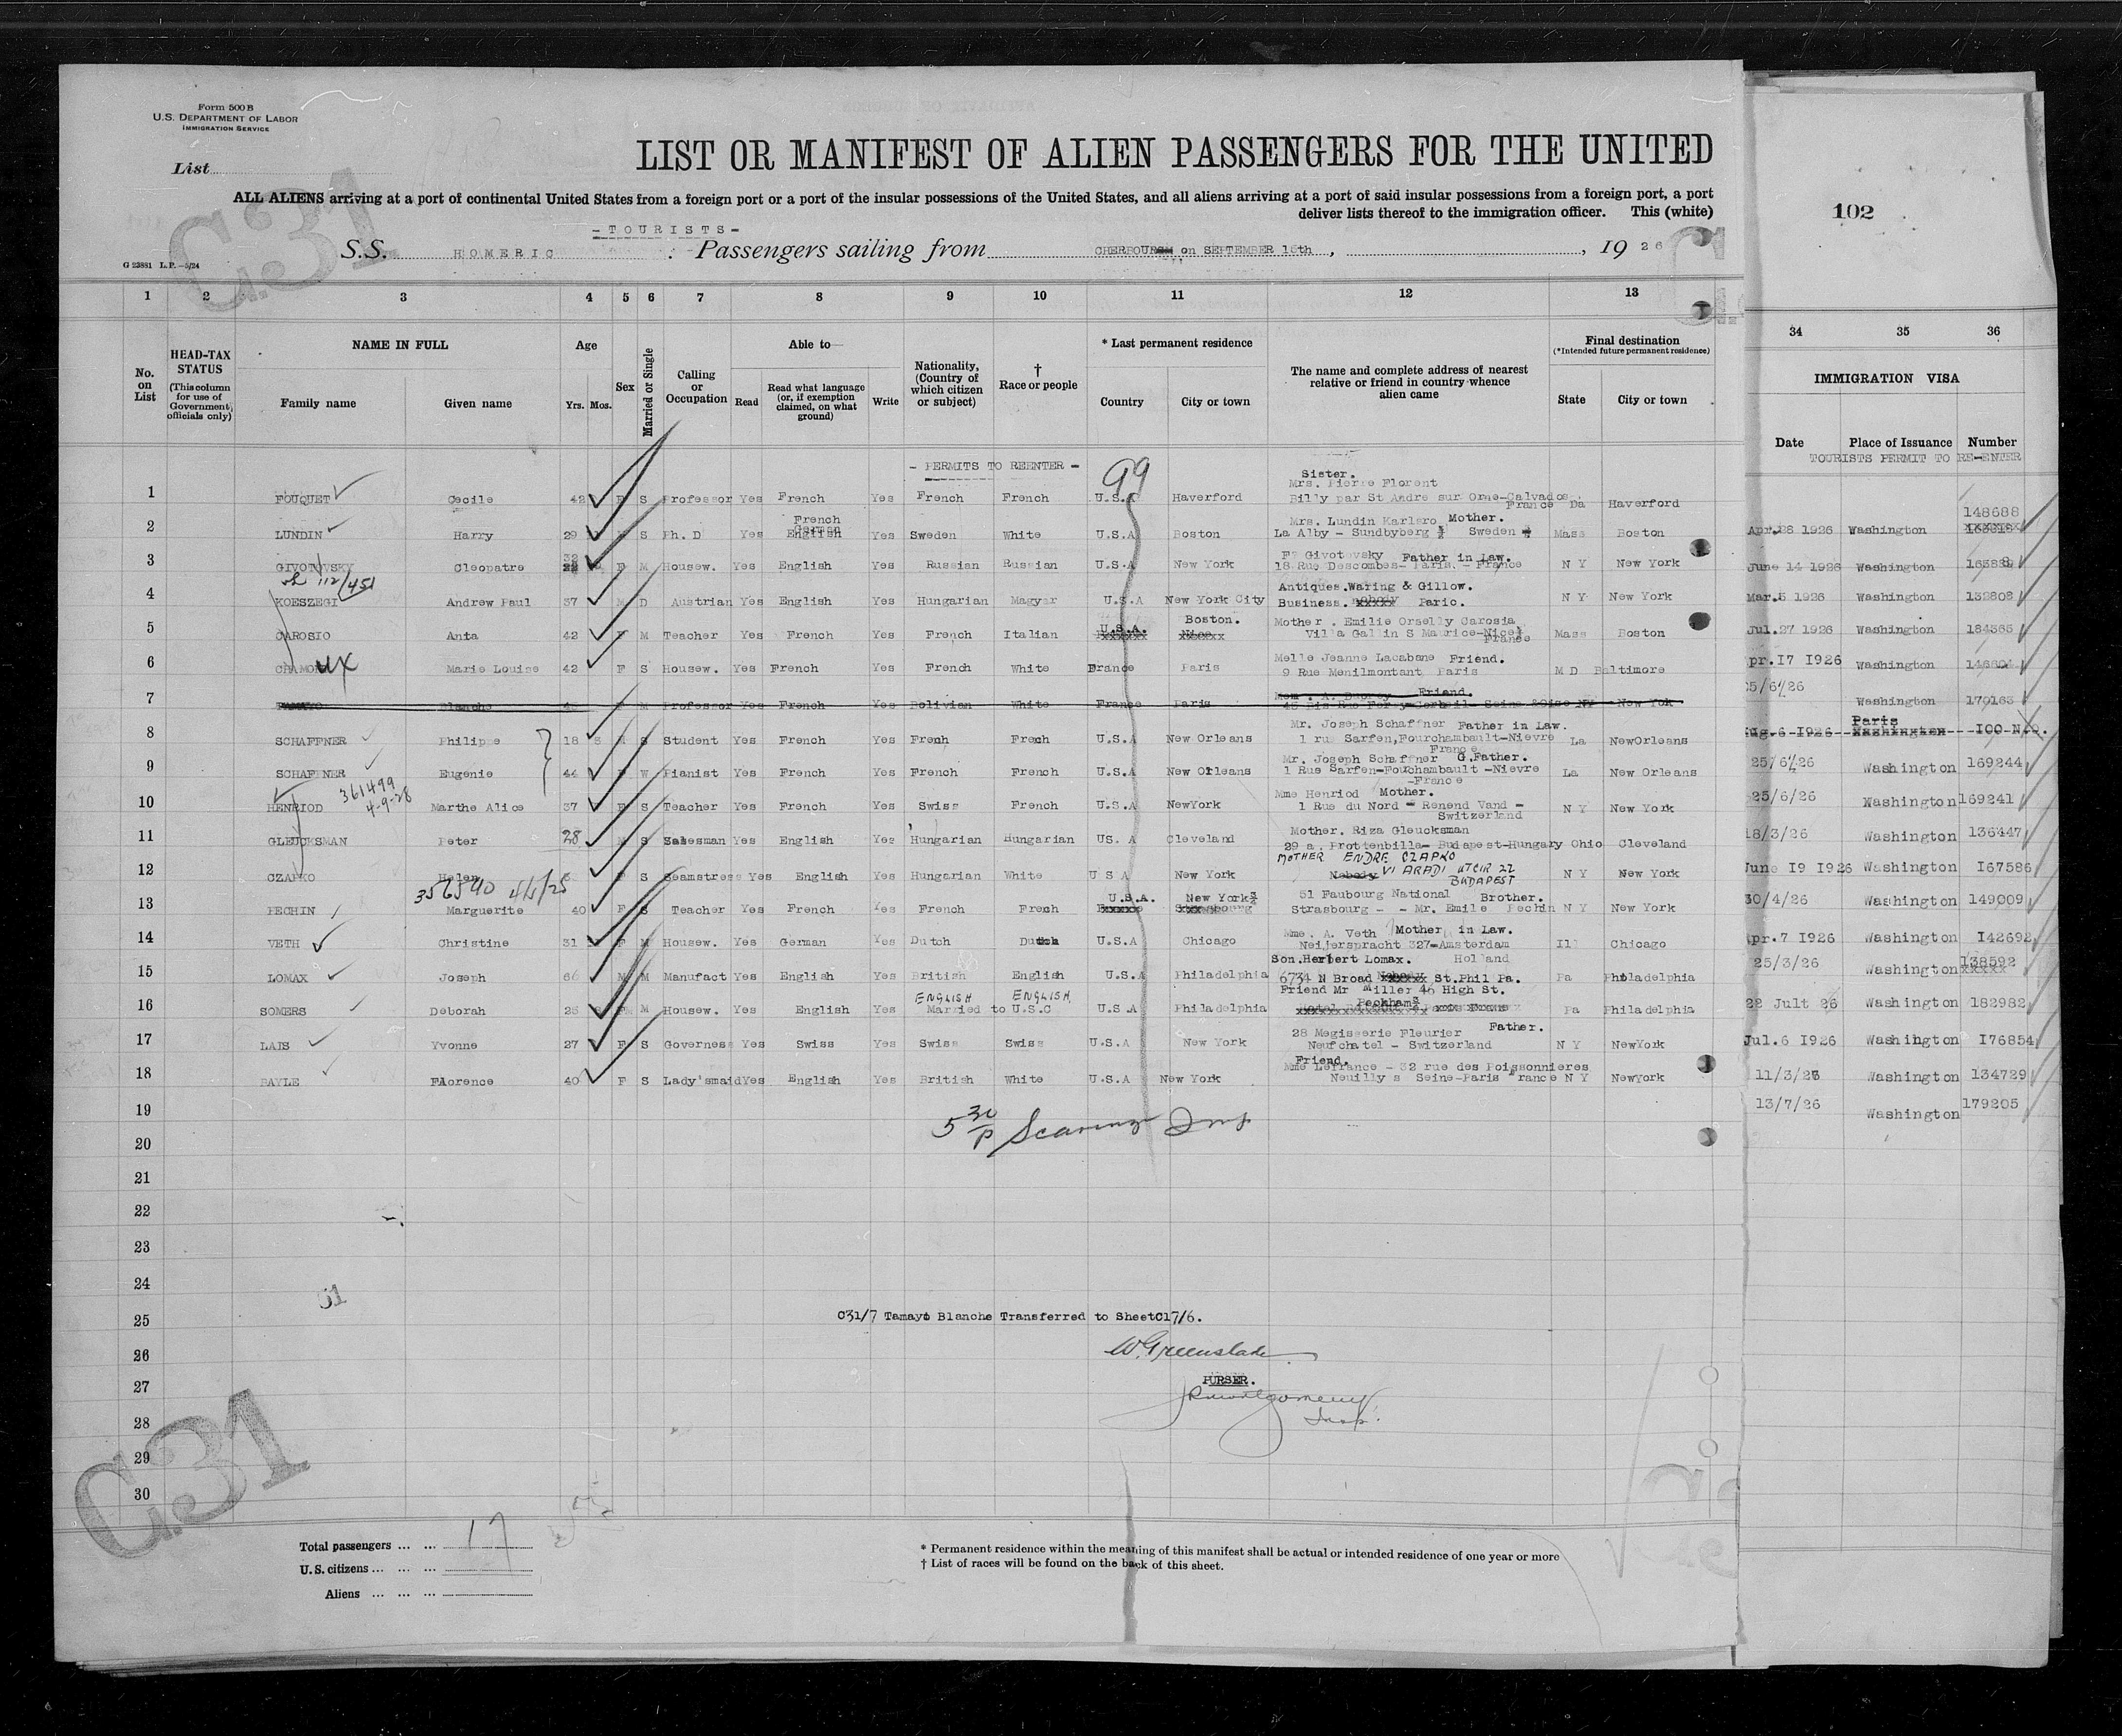 Form 500 B
U.S. DEPARTMENT OF LABOR
IMMIGRATION SERVICE
List
LIST OR MANIFEST OF ALIEN PASSENGERS FOR THE UNITED
ALL ALIENS arriving at a port of continental United States from a foreign port or a port of the insular possessions of the United States, and all aliens arriving at a port of said insular possessions from a foreign port, a port
deliver lists thereof to the immigration officer. This (white)
102
- TOURISTS -
S.S. HOMERIC Passengers sailing from CHERBOURG on SEPTEMBER 15th, 19 26
G 23881 L.P.—5/24
C31
1 2 3 4 5 6 7 8 9 10 11 12 13 34 35 36
No. on List
HEAD-TAX STATUS (This column for use of Government officials only)
NAME IN FULL Family name Given name
Age Yrs. Mos.
Sex
Married or Single
Calling or Occupation
Able to Read Read what language (or, if exemption claimed, on what ground) Write
Nationality, (Country of which citizen or subject)
† Race or people
* Last permanent residence Country City or town
The name and complete address of nearest relative or friend in country whence alien came
Final destination (*Intended future permanent residence) State City or town
IMMIGRATION VISA Date Place of Issuance Number
TOURISTS PERMIT TO RE-ENTER
- PERMITS TO REENTER - 99
Sister.
Mrs. Pierre Florent
1 FOUQUET Cecile 42 F S Professor Yes French Yes French French U.S.A Haverford Billy par St Andre sur Orne-Calvados France Haverford
2 LUNDIN Harry 29 S Ph. D Yes French German English Yes Sweden White U.S.A Boston Mrs. Lundin Karlsro Mother. La Alby - Sundbyberg Sweden Mass Boston Apr.28 1926 Washington 148688
3 GIVOTOVSKY Cleopatre 32 F M Housew. Yes English Yes Russian Russian U.S.A New York Givotovsky Father in Law. 18 Rue Descombes- Paris. - France N Y New York June 14 1926 Washington
112/451
4 KOESZEGI Andrew Paul 37 M D Austrian Yes English Yes Hungarian Magyar U.S.A New York City Antiques.Waring & Gillow. Business. Paric. N Y New York Mar.5 1926 Washington 132808
5 CAROSIO Anta 42 F M Teacher Yes French Yes French Italian U.S.A. Boston. Mother . Emilie Orselly Carosia Villa Gallin S Maurice-Nice France Mass Boston Jul.27 1926 Washington 184565
6 Marie Louise 42 F S Housew. Yes French Yes French White France Paris Melle Jeanne Lacabane Friend. 9 Rue Menilmontant Paris M D Baltimore pr.17 1926 Washington
7 Blanche F M Professor Yes French Yes Bolivian White France Paris Friend. NY New Yok 5/6/26 Washington 170163
8 SCHAFFNER Philippe 18 S Student Yes French Yes French French U.S.A New Orleans Mr. Joseph Schaffner Father in Law. 1 rue Sarfen,Fourchambault-Nievre France La NewOrleans ug.6 1926 Paris Washington 100-N.Q.
9 SCHAFFNER Eugenie 44 F W Pianist Yes French Yes French French U.S.A New Orleans Mr. Joseph Schaffner G.Father. 1 Rue Sarfen-Fouchambault -Nievre -France La New Orleans 25/6/26 Washington 169244
361499 4-9-28
10 HENRIOD Marthe Alice 37 F S Teacher Yes French Yes Swiss French U.S.A NewYork Mme Henriod Mother. 1 Rue du Nord - Renend Vand - Switzerland N Y New York 25/6/26 Washington 169241
11 GLEUCKSMAN Peter 28 M S Salesman Yes English Yes Hungarian Hungarian US. A Cleveland Mother. Riza Gleucksman 29 a. Prottenbilla- Budapest-Hungary Ohio Cleveland 18/3/26 Washington 136447
12 CZAPKO Helen F S Seamstress Yes English Yes Hungarian White U S A New York MOTHER ENDRE CZAPKO Nobody VI ARADI UTCIR 22 BUDAPEST N Y New York June 19 1926 Washington 167586
356590
13 PECHIN Marguerite 40 F S Teacher Yes French Yes French French U.S.A. New York 51 Faubourg National Brother. Strasbourg - - Mr. Emile Pechin N Y New York 30/4/26 Washington 149009
14 VETH Christine 31 F M Housew. Yes German Yes Dutch Dutch U.S.A Chicago Mme. A. Veth Mother in Law. Neijerspracht 327-Amsterdam Holland Ill Chicago pr.7 1926 Washington 142692
15 LOMAX Joseph 66 M M Manufact Yes English Yes British English U.S.A Philadelphia Son.Herbert Lomax. 6734 N Broad St.Phil Pa. Pa Philadelphia 25/3/26 Washington 138592
16 SOMERS Deborah 25 F M Housew. Yes English Yes ENGLISH ENGLISH Married to U.S.C U.S.A Philadelphia Friend Mr Miller 46 High St. Peckham Pa Philadelphia 22 Jult 26 Washington 182982
17 LAIS Yvonne 27 F S Governess Yes Swiss Yes Swiss Swiss U.S.A New York 28 Megisserie Fleurier Father. Neufchatel - Switzerland N Y NewYork Jul.6 1926 Washington 176854
18 BAYLE Florence 40 F S Lady'smaid Yes English Yes British White U.S.A New York Friend. Mme Lefrance - 32 rue des Poissonnieres Neuilly s Seine-Paris France N Y NewYork 11/3/26 Washington 134729
19 13/7/26 Washington 179205
5 30/P Insp
20
21
22
23
24
25 C31/7 Tamayo Blanche Transferred to SheetC17/6.
26 W. Greenslade
27 PURSER.
28 Montgomery Insp.
29
30
C31
Total passengers ... ... 17
U.S. citizens ... ... ...
Aliens ... ... ...
* Permanent residence within the meaning of this manifest shall be actual or intended residence of one year or more
† List of races will be found on the back of this sheet.